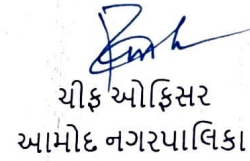 ચીફ ઓફિસર
આમોદ નગરપાલિકા